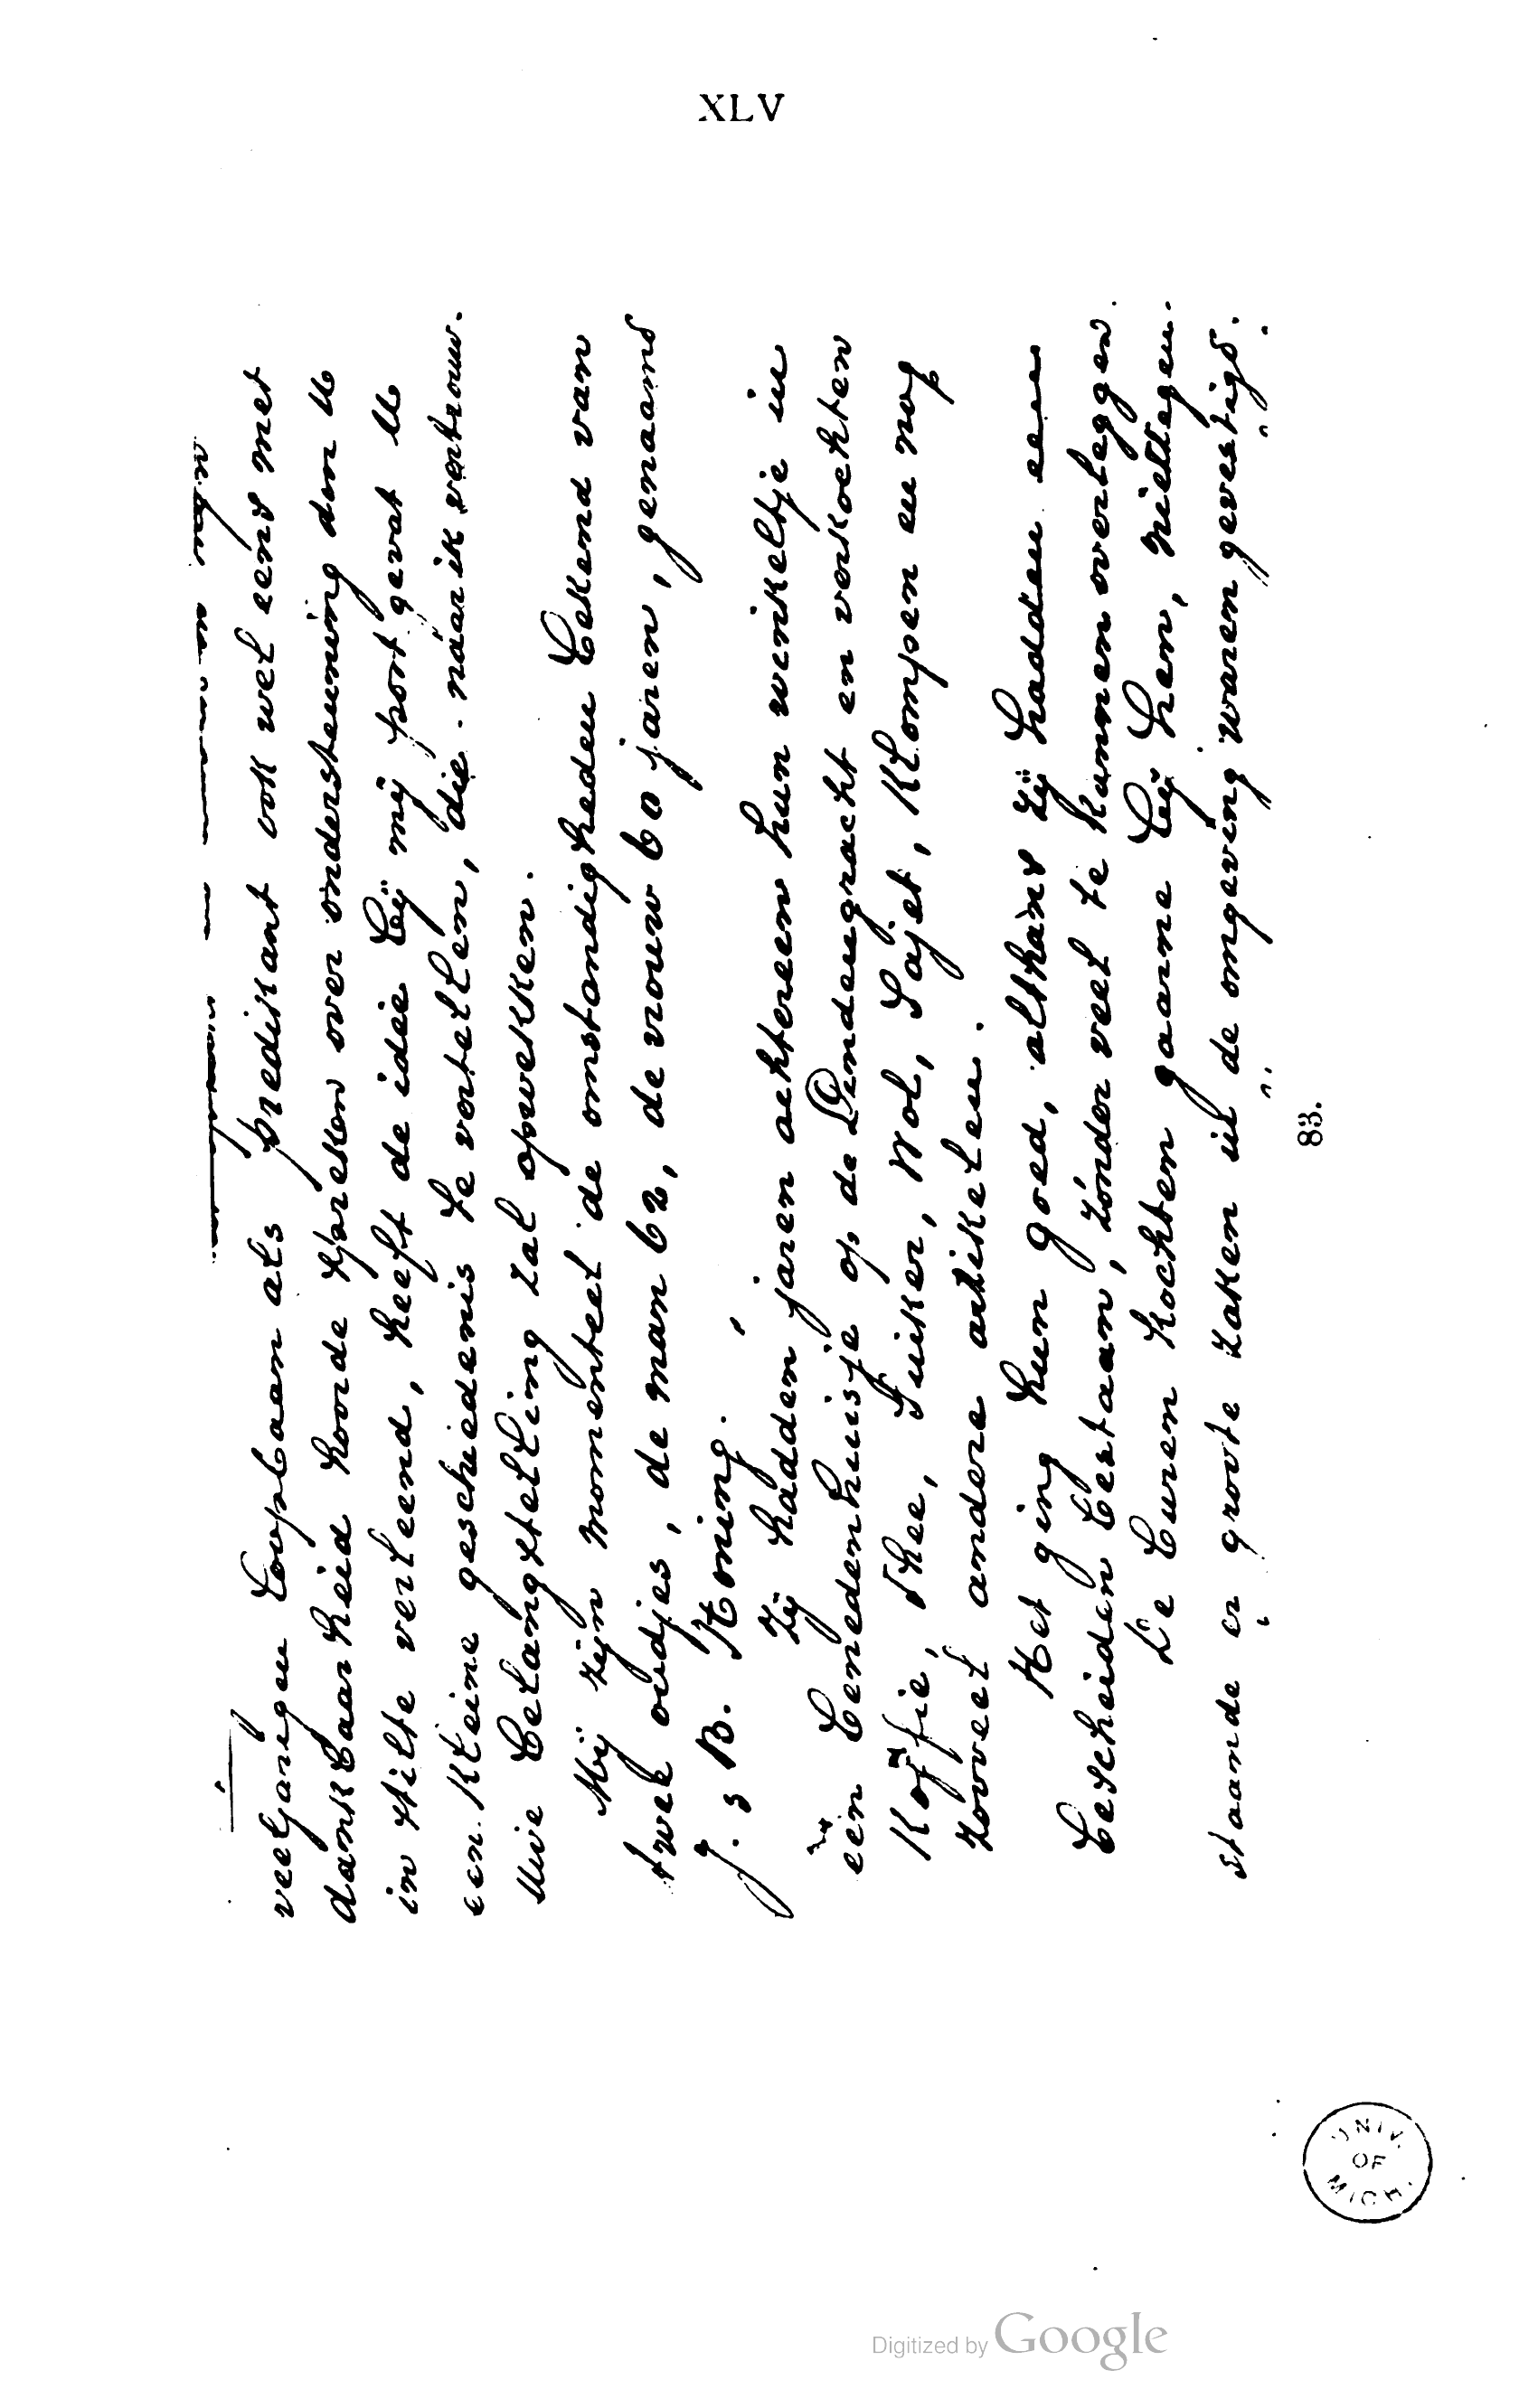 XLV
veeljarigen loopbaan als predikant ook wel eens met
dankbaarheid hoorde spreken over ondersteuning door U
in stilte verleend, heeft de idée bij mij post gevat U
een kleine geschiedenis te vertellen, die - naar ik vertrouw -
Uwe belangstelling zal opwekken.
Mij zijn momenteel de omstandigheden bekend van
twee oudjes, de man 62, de vrouw 60 jaren, genaamd
J. B. Koning.
Zij hadden jaren achtereen hun winkeltje in
één benedenhuisje op de Lindengracht en verkochten
Koffie, Thee, Suiker, Wol, Sajet, Klompen en nog
zooveel andere artikelen.
Het ging hun goed, althans zij hadden een
bescheiden bestaan, zonder veel te kunnen overleggen.
De buren kochten gaarne bij hen, niettegen-
staande er groote zaken in de omgeving waren gevestigd.
83.
UNIV. OF MICH.
Digitized by Google